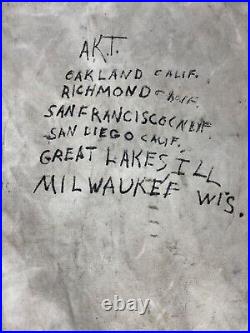 AKT.
OAKLAND CALIF.
RICHMOND CALIF.
SANFRANCISCO CALIF
SAN DIEGO CALIF.
GREAT LAKES, ILL
MILWAUKEE WIS.
ebay